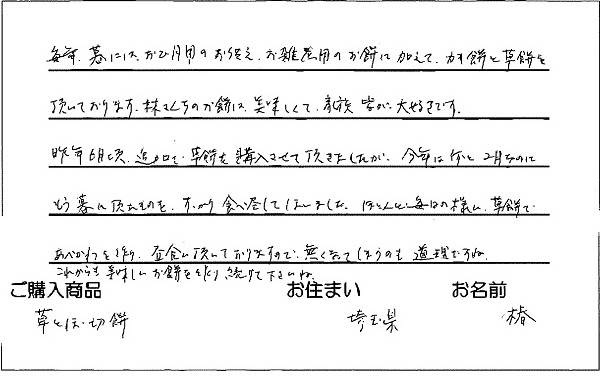 毎年、暮には、お正月用のお供え、お雑煮用のお餅に加えて、カキ餅と草餅を
頂いております。林さんちのお餅は、美味しくて、家族皆が大好きです。
昨年6月頃、追加で、草餅を購入させて頂きましたが、今年は何と2月なのに
もう暮に頂たものを、すっかり食べ尽してしまいました。ほとんど毎日の様に、草餅で
あべかわを作り、昼食に頂いておりますので、無くなってしまうのも道理ですね。
これからも美味しいお餅を作り続けて下さいね。
ご購入商品 お住まい お名前
草とぼ・切餅 埼玉県 椿